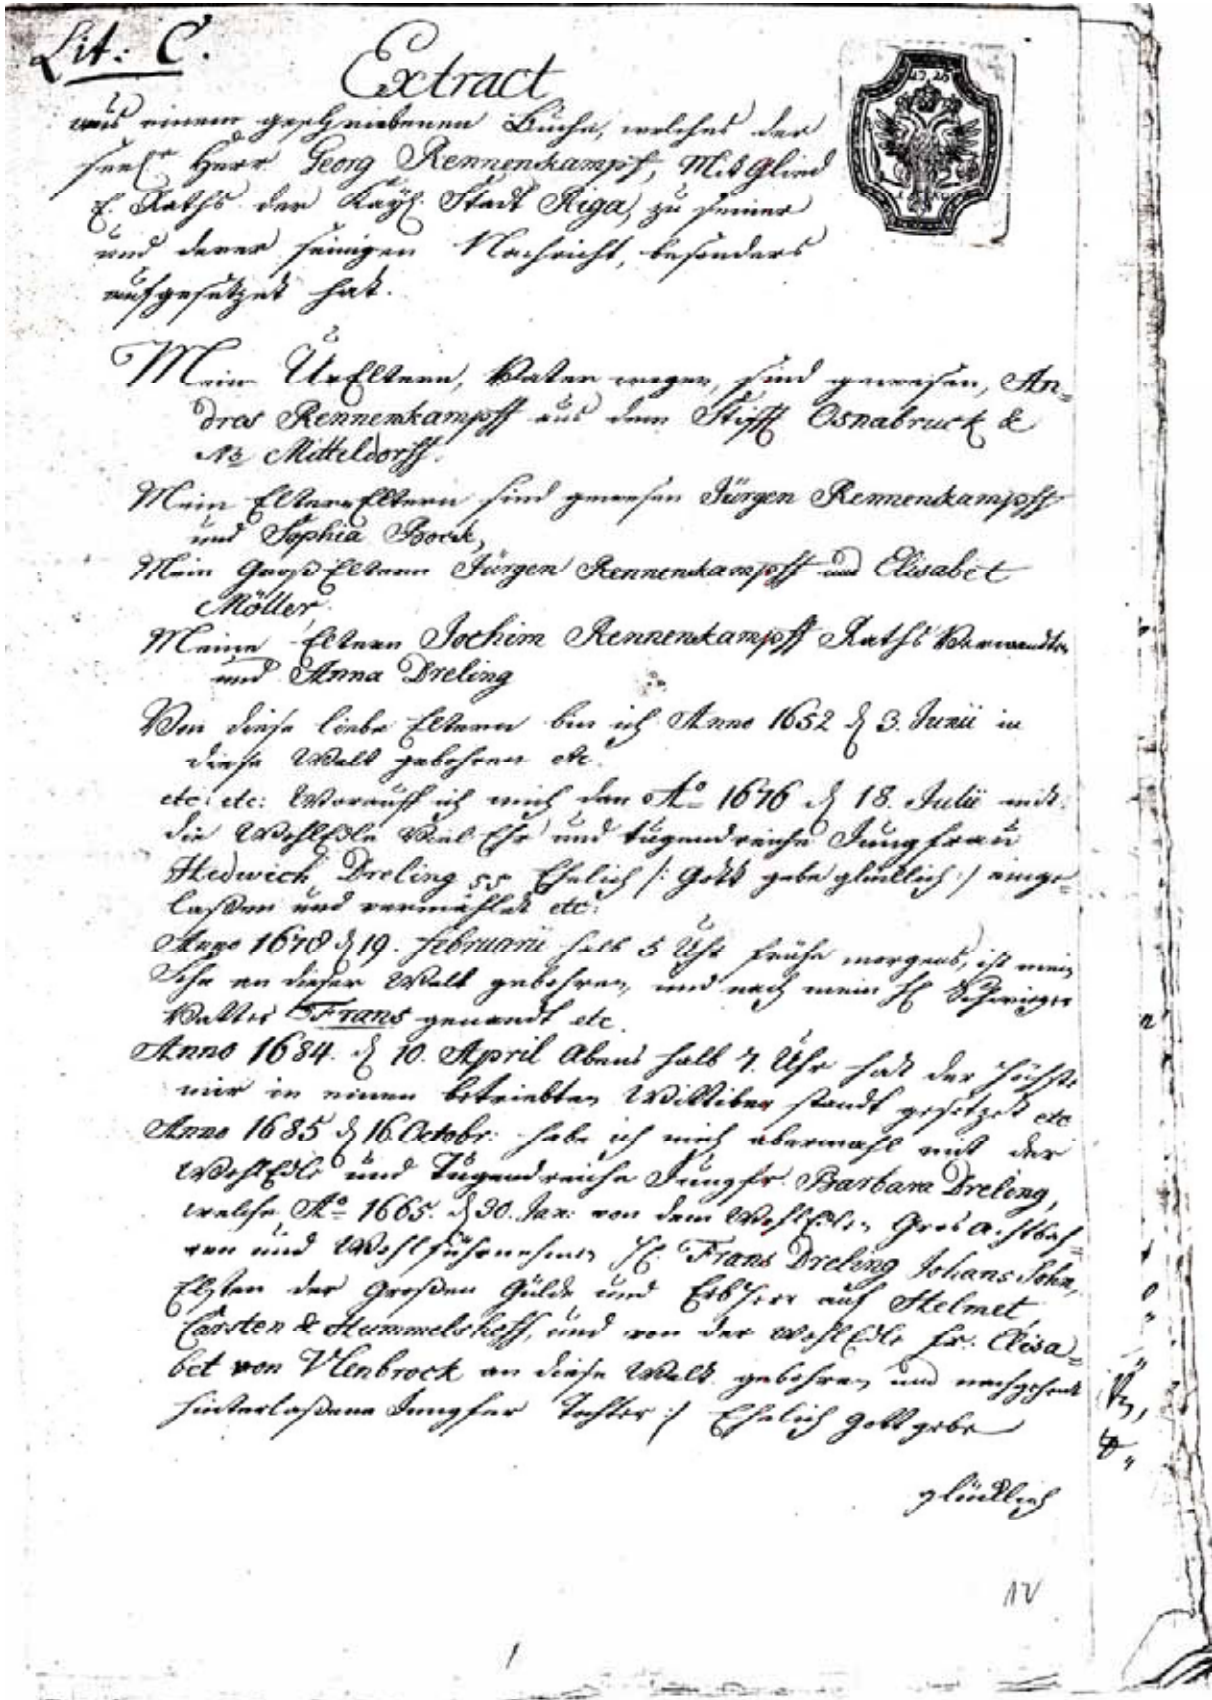 Lit: C.
Extract
aus einem geschriebenen Buche, welches der
seel. Herr Georg Rennenkampff, MitGlied
E. Raths der Kayl. Stadt Riga, zu seiner
und derer seinigen Nachricht, besonders
aufgesetzet hat.
Mein UrEltern, Vater wegen, sind gewesen, An=
dres Rennenkampff aus dem Stifft Osnabruck &
Mitteldorff.
Mein ElterEltern sind gewesen Jürgen Rennenkampff
und Sophia Bock,
Mein GroßEltern Jürgen Rennenkampff und Elisabet
Möller,
Meine Eltern Jochim Rennenkampff Raths Verwandter
und Anna Dreling
Von diese liebe Eltern bin ich Anno 1652 d 3. Junii in
diese Welt gebohren etc.
etc: etc: Worauff ich mich den Ao 1676 d 18. Julii mit
die WohlEdle Viel Ehr und tugendreiche Jungfrau
Hedwich Dreling Ehelich /: Gott gebe glücklich :/ einge=
laßen und vermählet etc:
Anno 1678 d 19. Februarii halb 5 Uhr frühe morgens, ist mein
Sohn an dieser Welt gebohren, und nach mein H. Schwieger
Vatter Frans genandt etc.
Anno 1684. d 10. April Abens halb 7. Uhr hat der Höchste
mir in einen betriebten Wittiber standt gesetzet etc
Anno 1685 d 16. Octobr: habe ich mich abermahl mit der
WohlEdle und Tugendreiche Jungfr. Barbara Dreling,
welche Ao 1665. d 30. Jan: von dem WohlEdlen Gros Achtbah=
ren und Wohlfürnehmen H. Frans Dreling Johans Sohn,
Elsten der Großen Gülde und ErbHerr auf Helmet,
Carsten & Hummelshoff, und von der WohlEdle Fr: Elisa=
bet von Ulenbrock an diese Welt gebohren und nachgehent
hinterlaßene Jungfer Tochter :/ Ehelich Gott gebe
glücklich
12